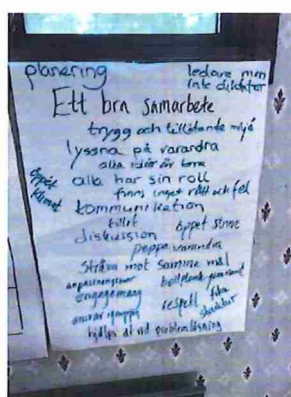 planering
ledare men
inte diktator
Ett bra samarbete
trygg och tillåtande miljö
lyssna på varandra
alla idéer är bra
alla har sin roll
öppet
klimat
finns inget rätt och fel
kommunikation
tillit
öppet sinne
diskussion
peppa varandra
Sträva mot samma mål
engagemang
respekt
fika
struktur
hjälps åt vid problemlösning